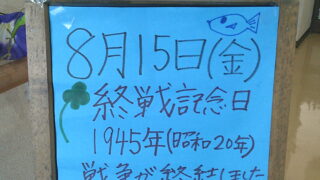 8月15日(金)
終戦記念日
1945年(昭和20年)
戦争が終結しました